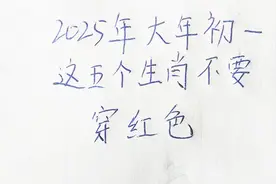 2025年大年初一
这五个生肖不要
穿红色